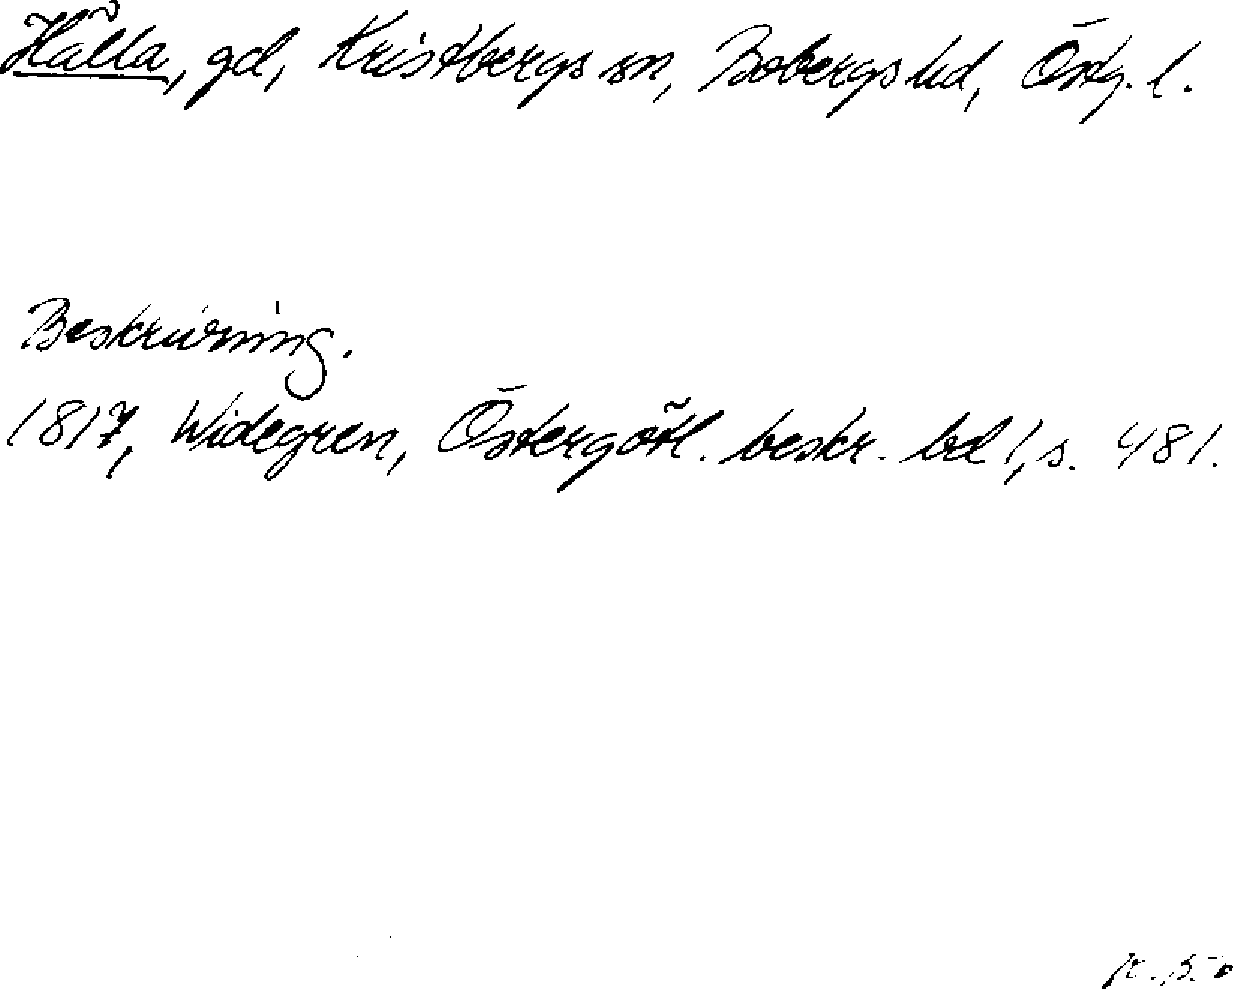 Hälla, gd, Kristbergs sn, Bobergs hd, Östg. l.
Beskrivning.
1817, Widegren, Östergötl. beskr. bd 1, s. 481.